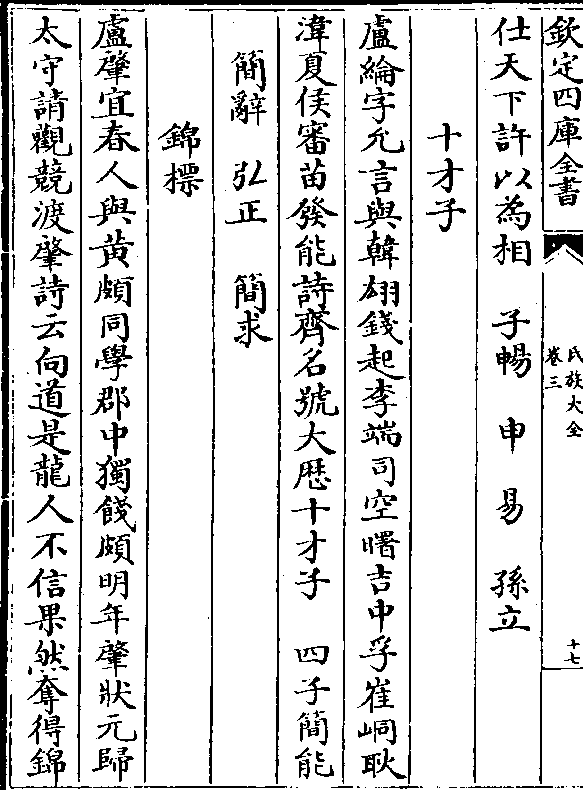 欽定四庫全書
氏族大全
卷三
十七
仕天下許以為相　子暢　申　易　孫立
十才子
盧綸字允言與韓翃錢起李端司空曙吉中孚崔峒耿
湋夏侯審苗發能詩齊名號大歷十才子　四子簡能
簡辭　弘正　簡求
錦標
盧肇宜春人與黃頗同學郡中獨餞頗明年肇狀元歸
太守請觀競渡肇詩云向道是龍人不信果然奪得錦